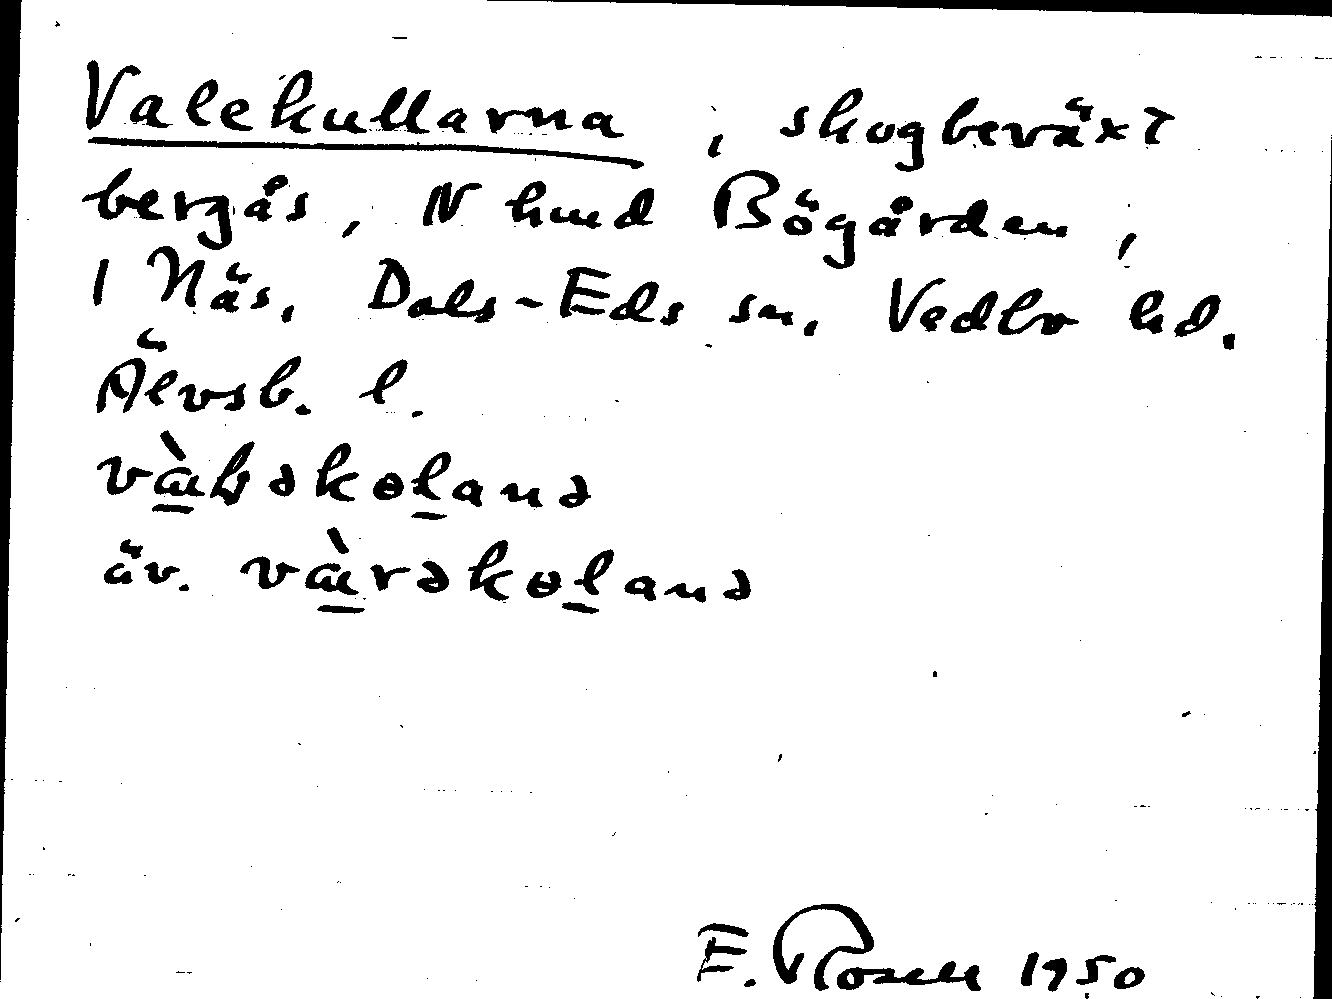 Valekullarna, skogbeväxt
bergås, N hmd Bögården,
1 Näs, Dals-Eds sn, Vedbo hd.
Älvsb. l.
äv. vàrəkɵlanə
E. Rosell 1950